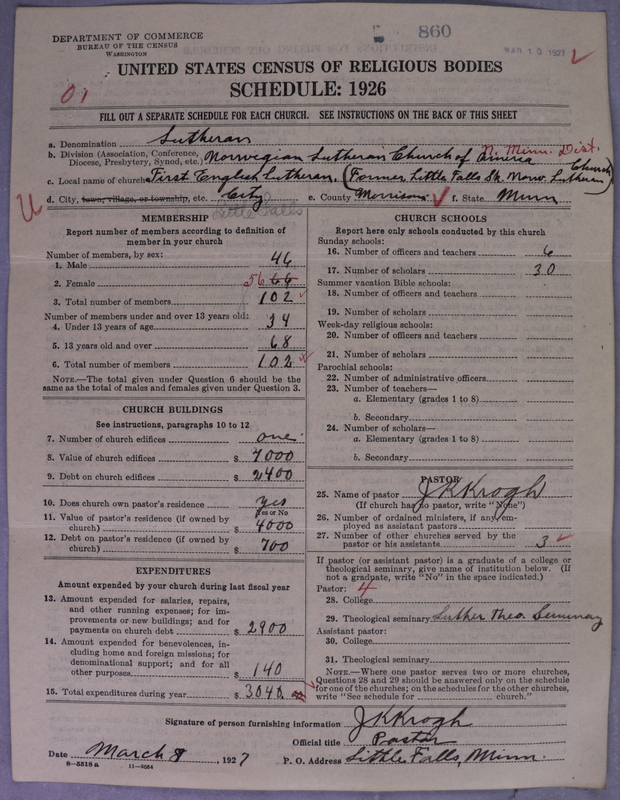 DEPARTMENT OF COMMERCE
BUREAU OF THE CENSUS
WASHINGTON
860
MAR 10 1927
UNITED STATES CENSUS OF RELIGIOUS BODIES
SCHEDULE: 1926
01
FILL OUT A SEPARATE SCHEDULE FOR EACH CHURCH. SEE INSTRUCTIONS ON THE BACK OF THIS SHEET
a. Denomination Lutheran
b. Division (Association, Conference, Diocese, Presbytery, Synod, etc.) Norwegian Lutheran Church of America N. Minn. Dist.
c. Local name of church First English Lutheran. (Former Little Falls Sk. Norw. Lutheran Church)
d. City, town, village, or township, etc. City e. County Morrison f. State Minn
Little Falls
U
MEMBERSHIP
Report number of members according to definition of
member in your church
Number of members, by sex:
1. Male 46
2. Female 56 66
3. Total number of members 102
Number of members under and over 13 years old:
4. Under 13 years of age 34
5. 13 years old and over 68
6. Total number of members 102
NOTE.—The total given under Question 6 should be
same as the total of males and females given under Question 3.
CHURCH BUILDINGS
See instructions, paragraphs 10 to 12
7. Number of church edifices one
8. Value of church edifices $ 7000
9. Debt on church edifices $ 2400
10. Does church own pastor's residence yes
Yes or No
11. Value of pastor's residence (if owned by
church) $ 4000
12. Debt on pastor's residence (if owned by
church) $ 700
EXPENDITURES
Amount expended by your church during last fiscal year
13. Amount expended for salaries, repairs,
and other running expenses; for im-
provements or new buildings; and for
payments on church debt $ 2900
14. Amount expended for benevolences, in-
cluding home and foreign missions; for
denominational support; and for all
other purposes $ 140
15. Total expenditures during year $ 3040
CHURCH SCHOOLS
Report here only schools conducted by this church
Sunday schools:
16. Number of officers and teachers 6
17. Number of scholars 30
Summer vacation Bible schools:
18. Number of officers and teachers
19. Number of scholars
Week-day religious schools:
20. Number of officers and teachers
21. Number of scholars
Parochial schools:
22. Number of administrative officers
23. Number of teachers—
a. Elementary (grades 1 to 8)
b. Secondary
24. Number of scholars—
a. Elementary (grades 1 to 8)
b. Secondary
PASTOR
25. Name of pastor J K Krogh
(If church has no pastor, write "None")
26. Number of ordained ministers, if any, em-
ployed as assistant pastors
27. Number of other churches served by the
pastor or his assistants 3
If pastor (or assistant pastor) is a graduate of a college or
theological seminary, give name of institution below. (If
not a graduate, write "No" in the space indicated.)
Pastor: 4
28. College
29. Theological seminary Luther Theo. Seminay
Assistant pastor:
30. College
31. Theological seminary
NOTE.—Where one pastor serves two or more churches,
Questions 28 and 29 should be answered only on the schedule
for one of the churches; on the schedules for the other churches,
write "See schedule for church."
Signature of person furnishing information J K Krogh
Official title Pastor
Date March 8, 1927 P. O. Address Little Falls, Minn.
8—5518 a 11—9084